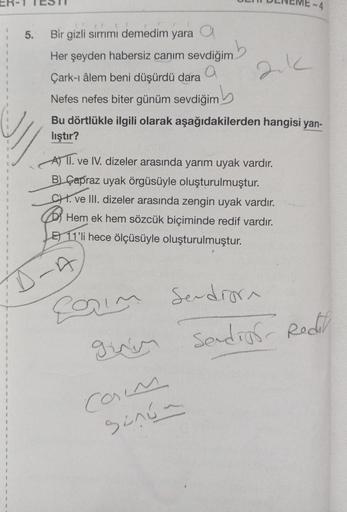 DENEME - 4
5. Bir gizli sırrımı demedim yara a
Her şeyden habersiz canım sevdiğim b
Çark-ı âlem beni düşürdü dara a
Nefes nefes biter günüm sevdiğim b
Bu dörtlükle ilgili olarak aşağıdakilerden hangisi yan-
lıştır?
A) II. ve IV. dizeler arasında yarım uyak vardır.
B) Çapraz uyak örgüsüyle oluşturulmuştur.
C) I. ve III. dizeler arasında zengin uyak vardır.
D) Hem ek hem sözcük biçiminde redif vardır.
E) 11'li hece ölçüsüyle oluşturulmuştur.
D-A
günüm
Redif
canım
günüm